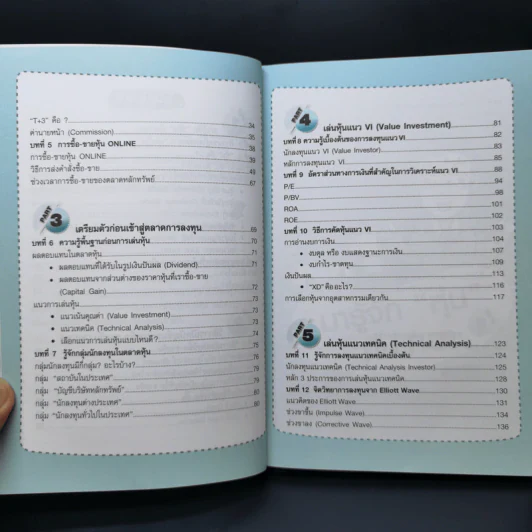 "T+3" คือ ?
ค่านายหน้า (Commission) 34
บทที่ 5 การซื้อ-ขายหุ้น ONLINE 35
การซื้อ-ขายหุ้น ONLINE 38
วิธีการส่งคำสั่งซื้อ-ขาย 39
ช่วงเวลาการซื้อ-ขายของตลาดหลักทรัพย์ 67
PART 3 เตรียมตัวก่อนเข้าสู่ตลาดการลงทุน 69
บทที่ 6 ความรู้พื้นฐานก่อนการเล่นหุ้น 70
ผลตอบแทนในตลาดหุ้น 71
• ผลตอบแทนที่ได้รับในรูปเงินปันผล (Dividend) 71
• ผลตอบแทนจากส่วนต่างของราคาหุ้นที่เราซื้อ-ขาย
(Capital Gain) 72
แนวการเล่นหุ้น 72
• แนวเน้นคุณค่า (Value Investment) 73
• แนวเทคนิค (Technical Analysis) 74
• เลือกแนวการเล่นหุ้นแบบไหนดี?
บทที่ 7 รู้จักกลุ่มนักลงทุนในตลาดหุ้น
กลุ่มนักลงทุนมีกี่กลุ่ม? อะไรบ้าง?
กลุ่ม "สถาบันในประเทศ"
กลุ่ม "บัญชีบริษัทหลักทรัพย์"
กลุ่ม "นักลงทุนต่างประเทศ"
กลุ่ม "นักลงทุนทั่วไปในประเทศ"
PART 4 เล่นหุ้นแนว VI (Value Investment) 81
บทที่ 8 ความรู้เบื้องต้นของการลงทุนแนว VI 82
นักลงทุนแนว VI (Value Investor) 83
หลักการลงทุนแนว VI 85
บทที่ 9 อัตราส่วนทางการเงินที่สำคัญในการวิเคราะห์แนว VI 88
P/E 88
P/BV 94
ROA 97
ROE 98
บทที่ 10 วิธีการคัดหุ้นแนว VI 100
การอ่านงบการเงิน
• งบดุล หรือ งบแสดงฐานะการเงิน
• งบกำไร-ขาดทุน
เงินปันผล 113
• "XD" คืออะไร? 116
การเลือกหุ้นจากอุตสาหกรรมเดียวกัน 117
PART 5 เล่นหุ้นแนวเทคนิค (Technical Analysis) 123
บทที่ 11 รู้จักการลงทุนแนวเทคนิคเบื้องต้น 124
นักลงทุนแนวเทคนิค (Technical Analysis Investor) 125
หลัก 3 ประการของการเล่นหุ้นแนวเทคนิค 126
บทที่ 12 จิตวิทยาการลงทุนจาก Elliott Wave 130
แนวคิดของ Elliott Wave 131
ช่วงขาขึ้น (Impulse Wave) 134
ช่วงขาลง (Corrective Wave) 136